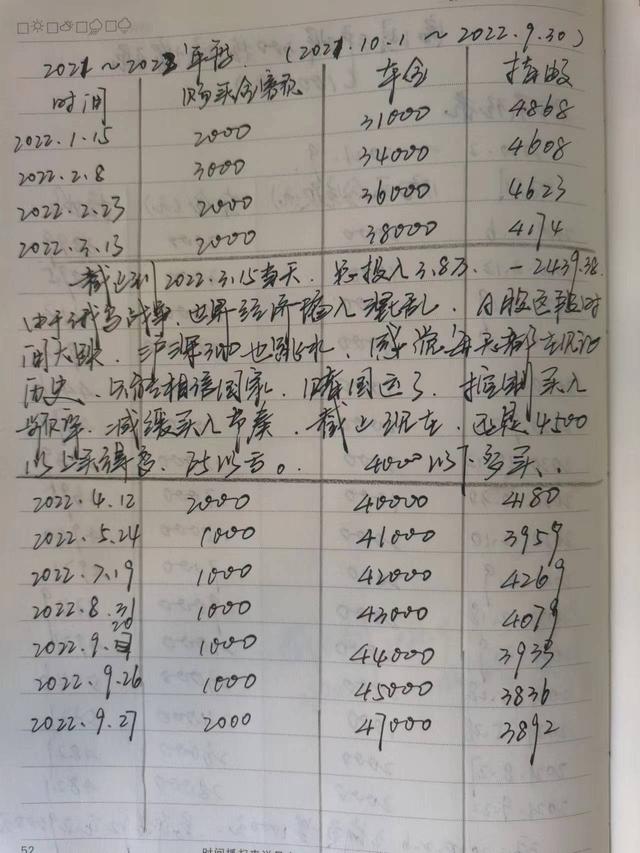 2021~2022年度 (2021.10.1 ~ 2022.9.30)
时间 购买金额 本金 指数
2022.1.15 2000 31000 4868
2022.2.8 3000 34000 4608
2022.2.23 2000 36000 4623
2022.3.15 2000 38000 4174
截止到2022.3.15当天. 总投入3.8万. -2439.38.
由于俄乌战争, 世界经济陷入混乱. A股这段时
间大跌. 沪深300也跌. 感觉每天都在见证
历史. 只能相信国家. 赌国运了. 控制买入
频率. 减缓买入节奏. 截止现在. 还是4500
以上买得多. 所以亏。 4000以下多买.
2022.4.12 2000 40000 4180
2022.5.24 1000 41000 3959
2022.7.19 1000 42000 4269
2022.8.31 1000 43000 4079
2022.9.20 1000 44000 3935
2022.9.26 1000 45000 3836
2022.9.27 2000 47000 3892
52